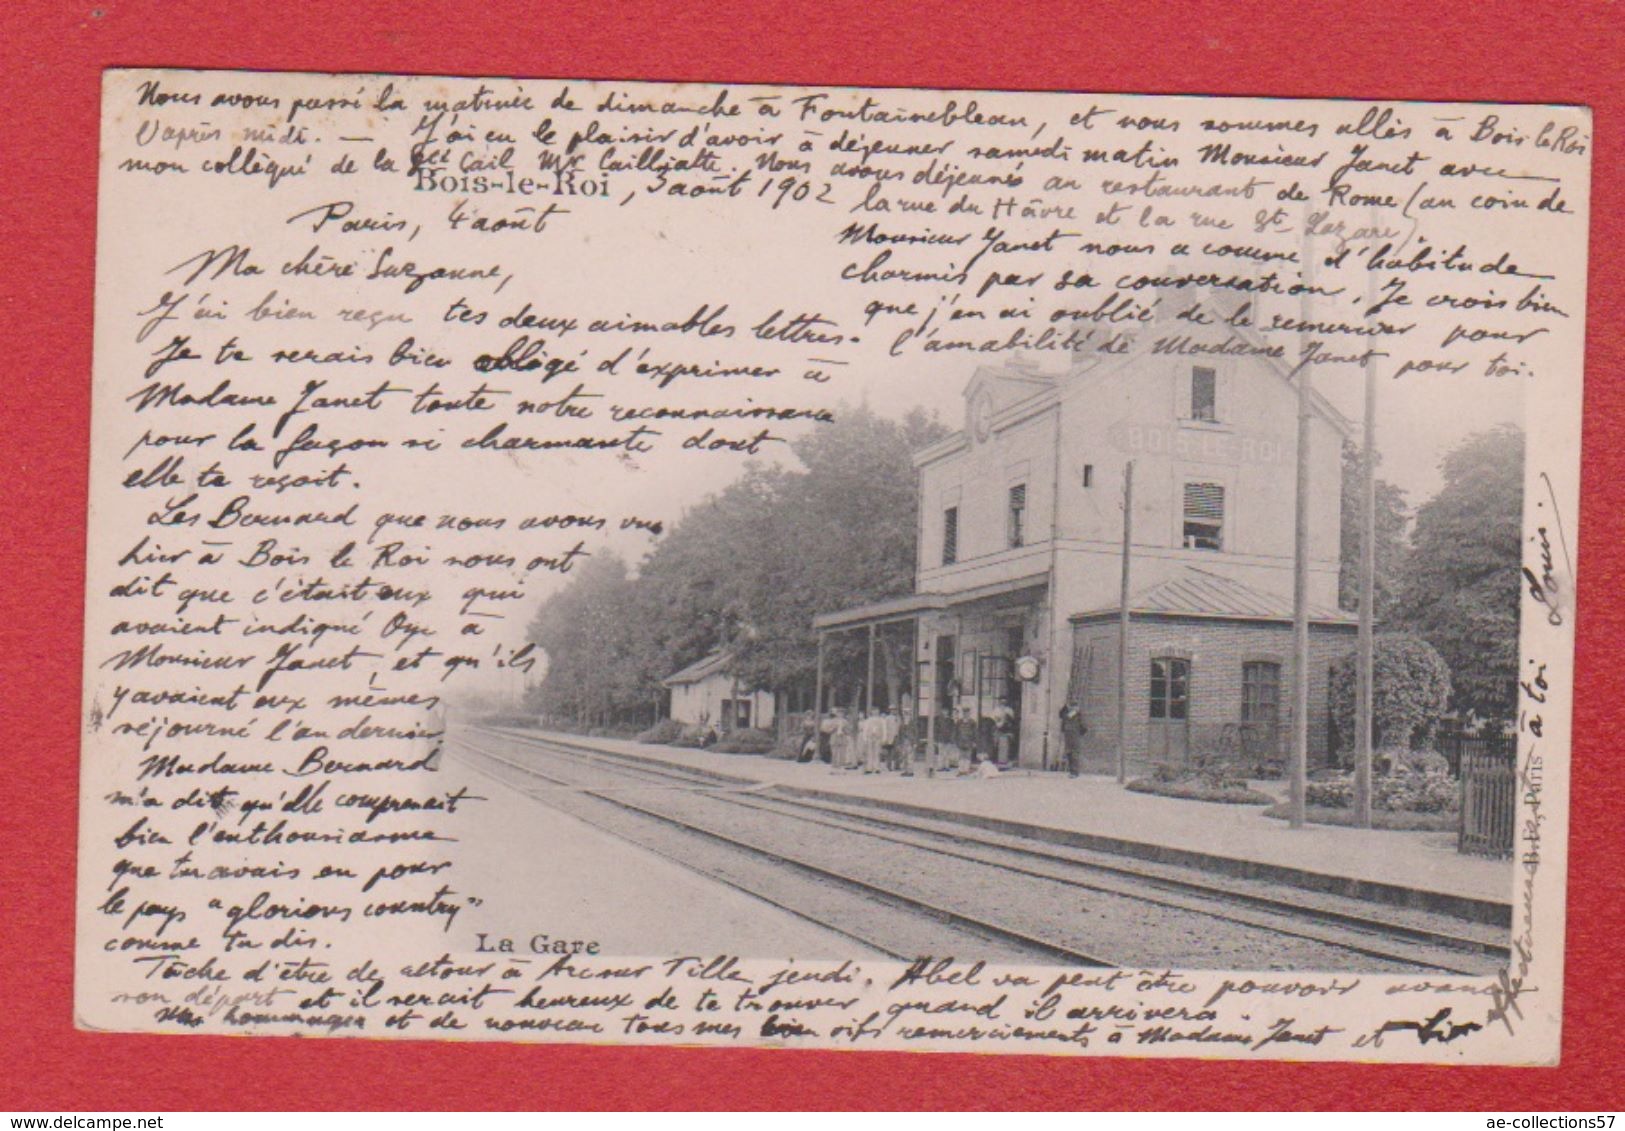 Nous avons passé la matinée de dimanche à Fontainebleau, et nous sommes allés à Bois le Roi
l'après midi. — J'ai eu le plaisir d'avoir à déjeuner samedi matin Monsieur Janet avec
mon collègué de la Sté Cail Mr Caillialte. Nous avons déjeuné au restaurant de Rome (au coin de
la rue du Hâvre et la rue St Lazare).
Monsieur Janet nous a comme d'habitude
charmés par sa conversation. Je crois bien
que j'en ai oublié de le remercier pour
l'amabilité de Madame Janet pour toi.
Bois-le-Roi, 3 août 1902
Paris, 4 août
Ma chère Suzanne,
J'ai bien reçu tes deux aimables lettres.
Je te serais bien obligé d'exprimer à
Madame Janet toute notre reconnaissance
pour la façon si charmante dont
elle te reçoit.
Les Bernard que nous avons vus
hier à Bois le Roi nous ont
dit que c'était eux qui
avaient indiqué Oye à
Monsieur Janet, et qu'ils
y avaient eux mêmes
séjourné l'an dernier.
Madame Bernard
m'a dit qu'elle comprenait
bien l'enthousiasme
que tu avais eu pour
le pays "glorious country"
comme tu dis.
Tâche d'être de retour à Arc sur Tille jeudi. Abel va peut être pouvoir avancer
son départ et il serait heureux de te trouver quand il arrivera.
Mes hommages et de nouveau tous mes bien vifs remerciements à Madame Janet et
Affectueusement à toi Louis.
BOIS-LE-ROI
La Gare
Paris
ae-collections57